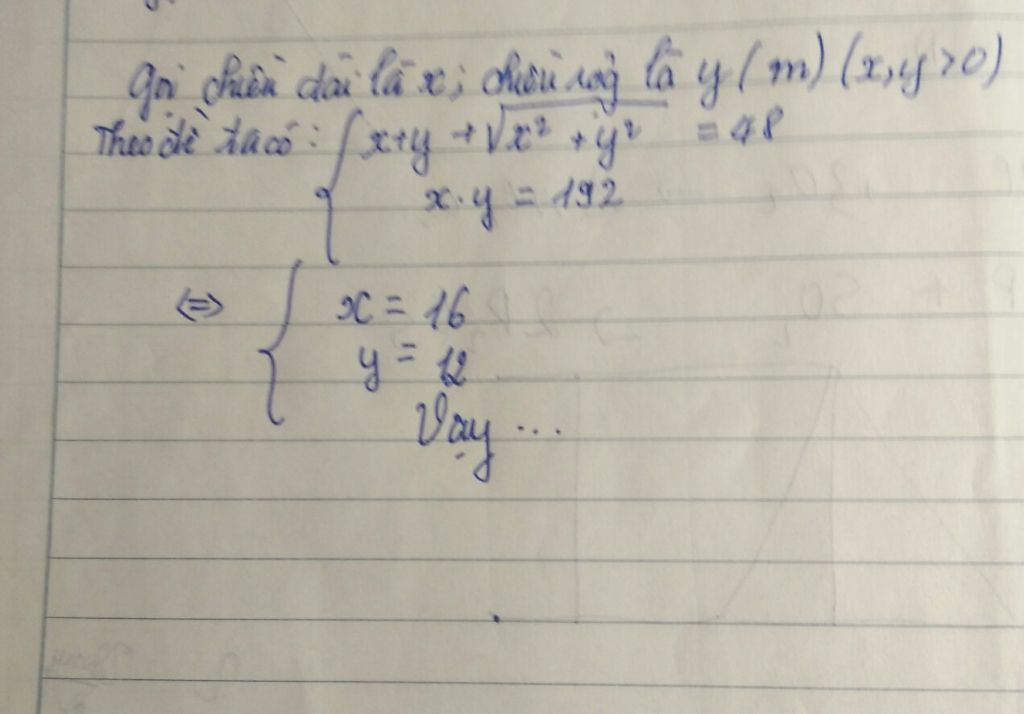 Gọi chiều dài là x; chiều rộng là y (m) (x,y>0)
Theo đề ta có: { x+y+√x²+y² = 48
x.y = 192
<=> { x = 16
y = 12
Vậy ...